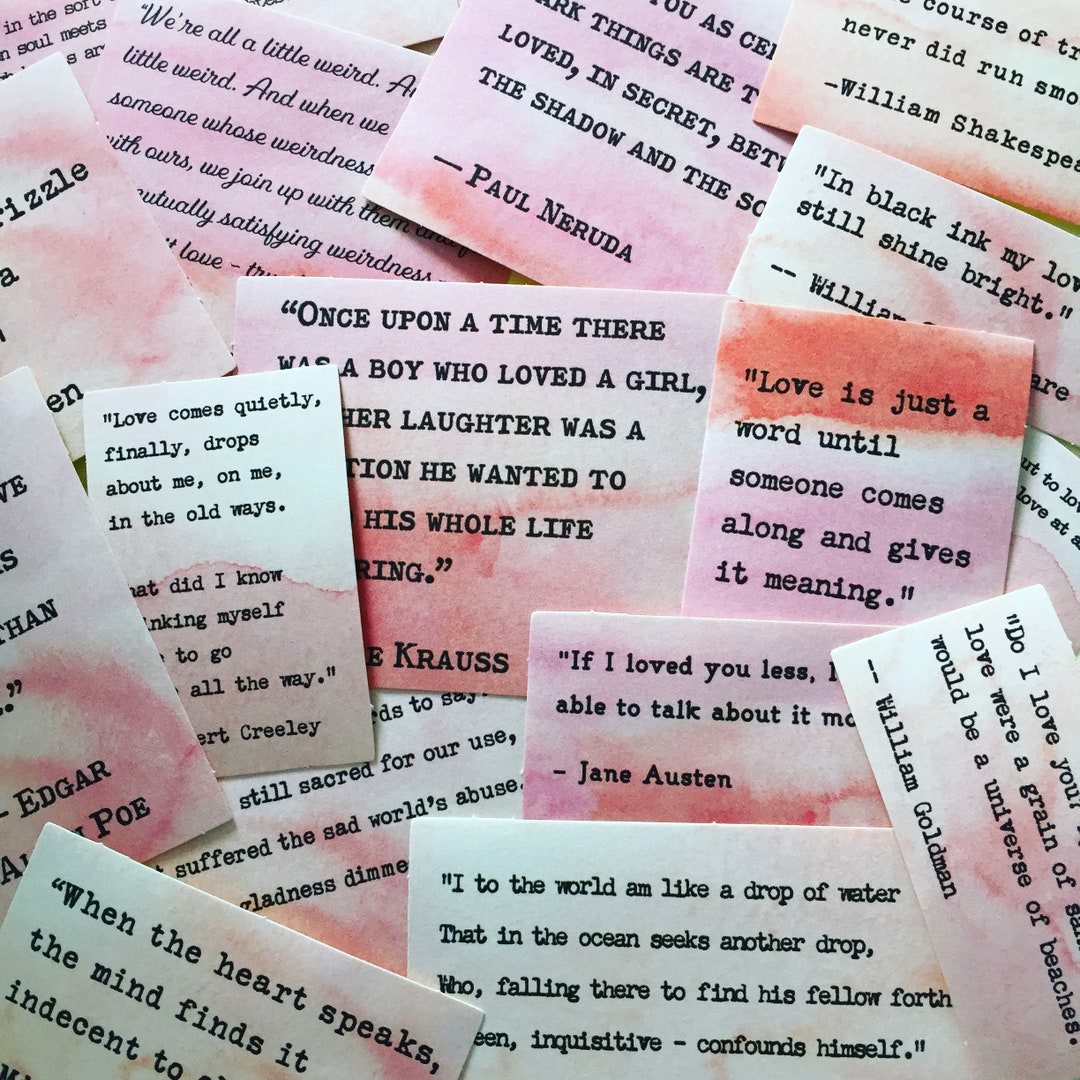 in the sort
soul meets
"We're all a little weird. A
little weird. And when we
someone whose weirdness
with ours, we join up with them and f
mutually satisfying weirdness
love - tru
YOU AS CER
ARK THINGS ARE T
LOVED, IN SECRET, BETW
THE SHADOW AND THE SO
— PAUL NERUDA
course of tr
never did run smo
-William Shakespea
"In black ink my lov
still shine bright."
-- William
are
rizzle
a
en
"ONCE UPON A TIME THERE
WAS A BOY WHO LOVED A GIRL,
HER LAUGHTER WAS A
TION HE WANTED TO
HIS WHOLE LIFE
RING."
E KRAUSS
"Love is just a
word until
someone comes
along and gives
it meaning."
"Love comes quietly,
finally, drops
about me, on me,
in the old ways.
hat did I know
nking myself
to go
all the way."
ert Creeley
ut to lov
love at a
VE
S
THAN
."
- EDGAR
POE
"If I loved you less, I
able to talk about it mo
- Jane Austen
"Do I love you?
love were a grain of sa
would be a universe of beaches.
-- William Goldman
ds to say
still sacred for our use,
suffered the sad world's abuse.
gladness dimme
"When the heart speaks,
the mind finds it
indecent to
"I to the world am like a drop of water
That in the ocean seeks another drop,
Who, falling there to find his fellow forth
een, inquisitive - confounds himself."